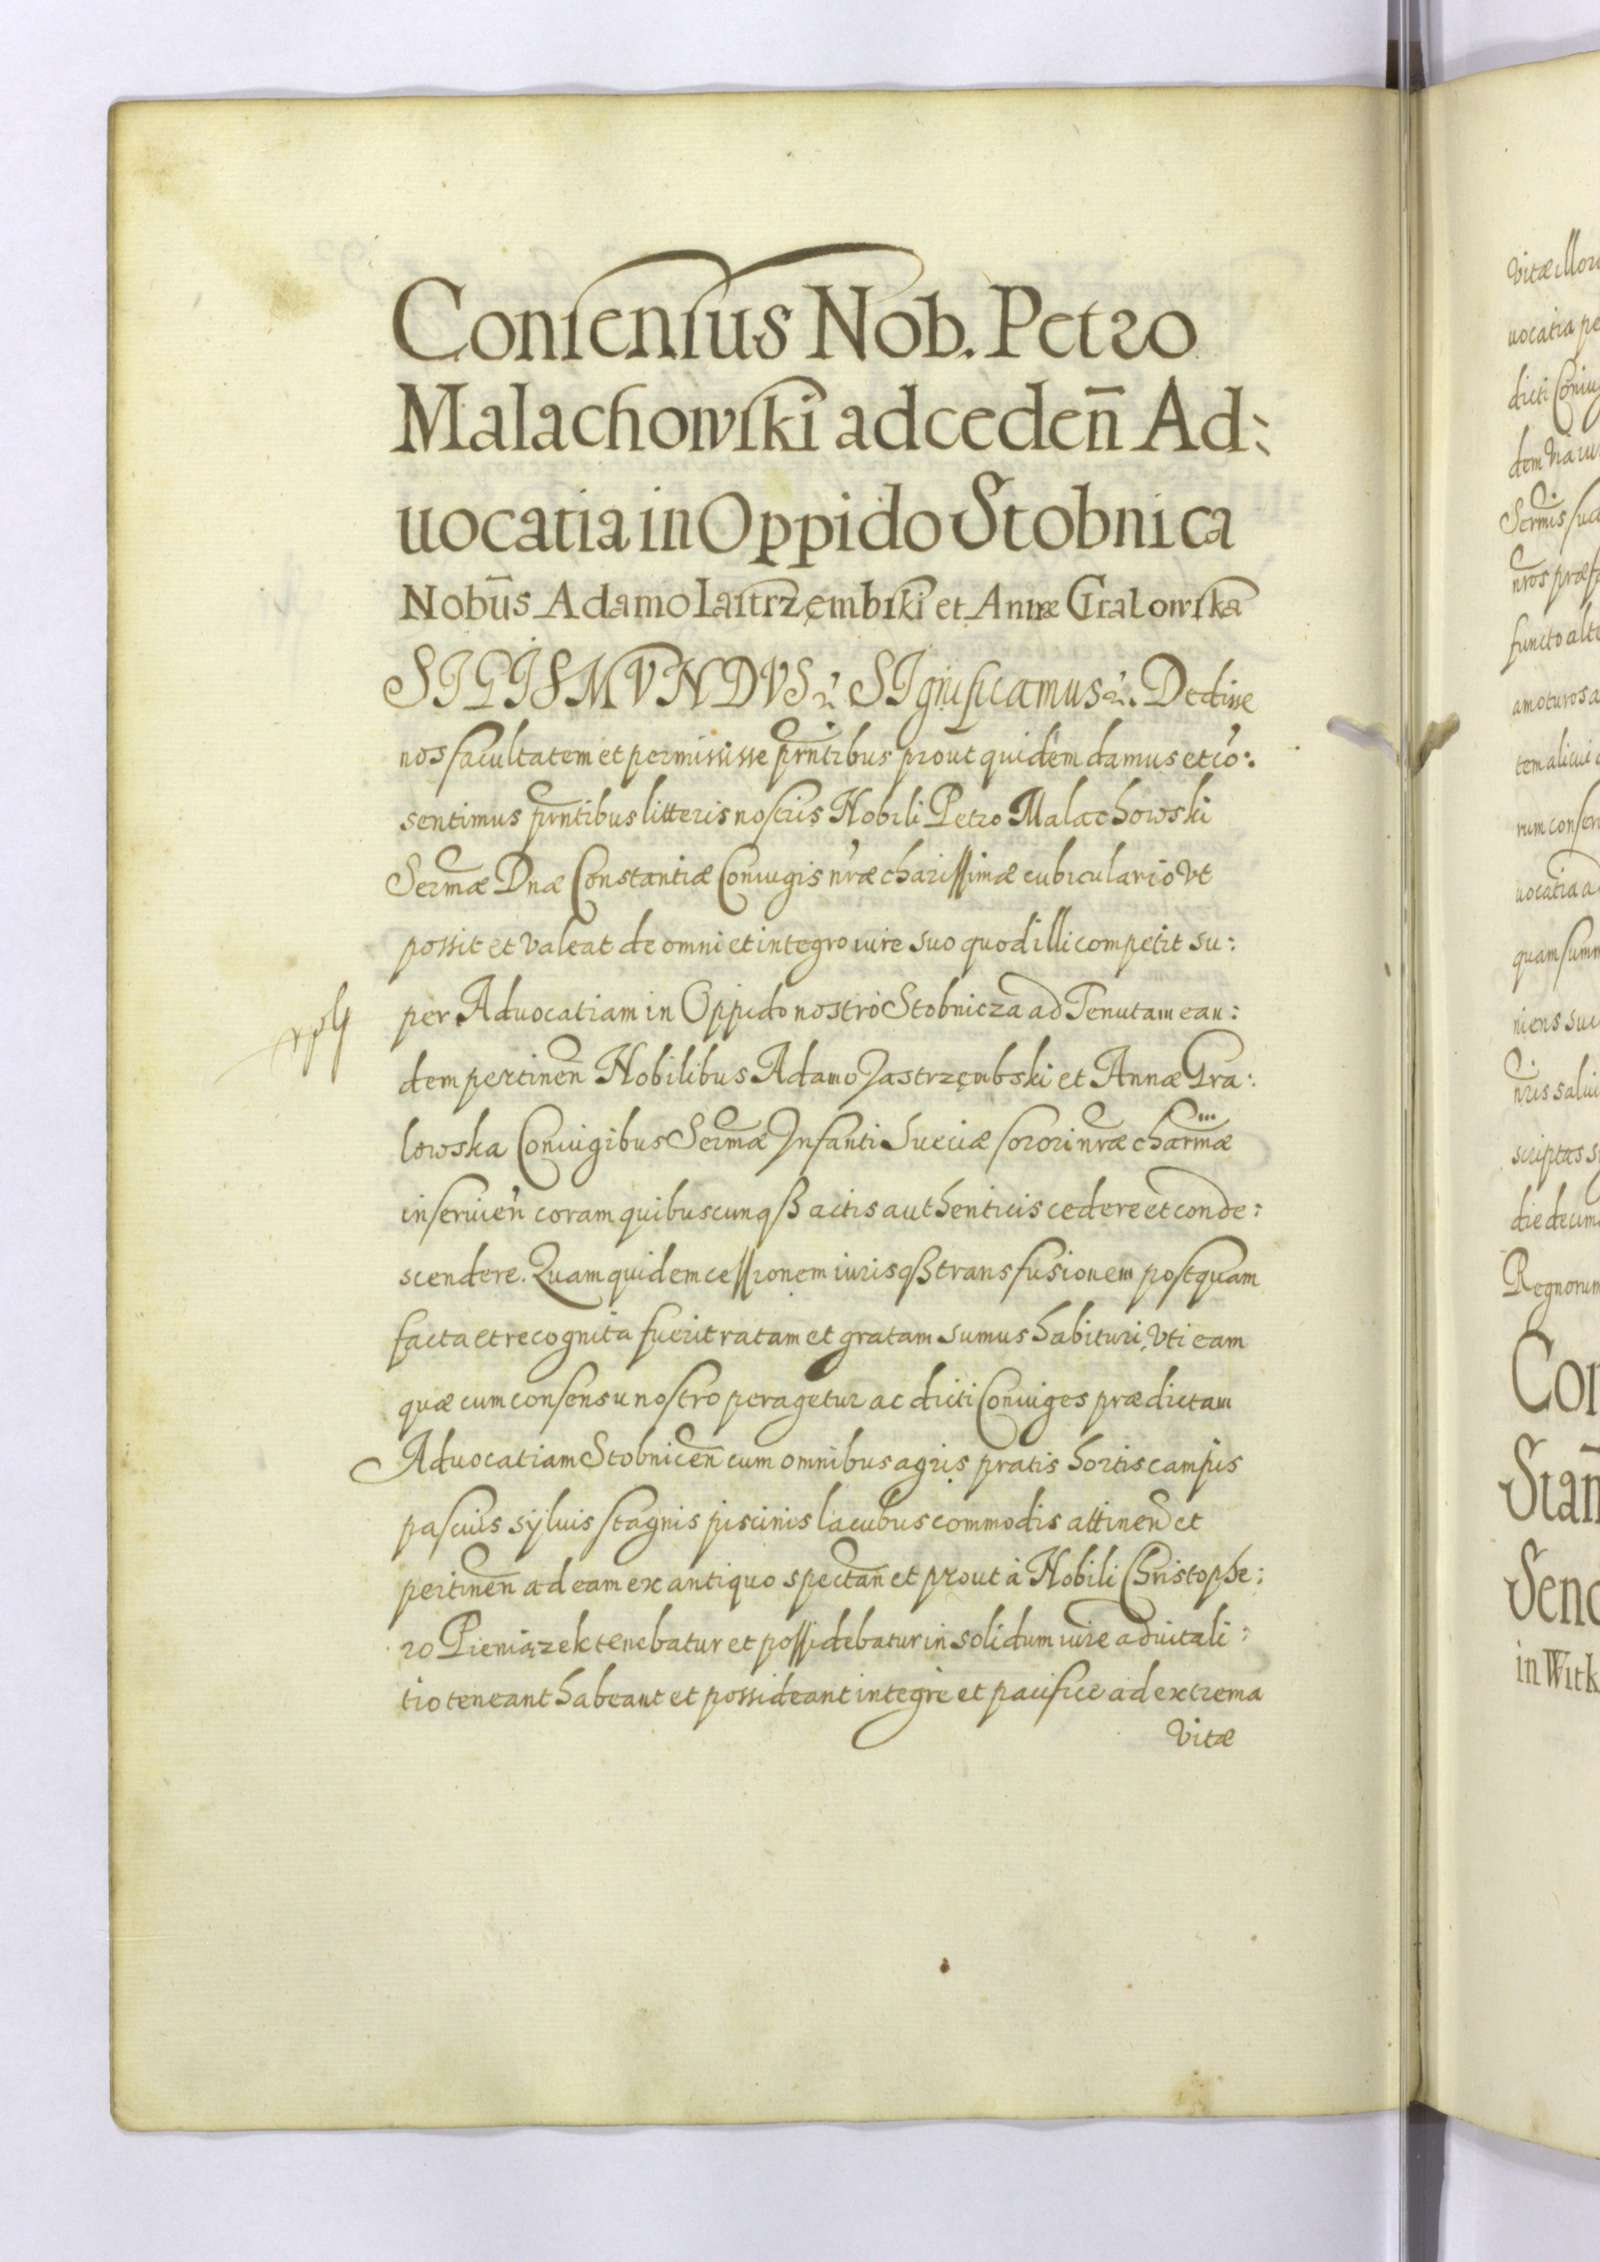 Consensus Nob. Petro
Malachowski ad ceden̄ Ad:
uocatia in Oppido Stobnica
Nobūs Adamo Iastrzembski et Annæ Gralowska
SIGISMVNDVS &c. SIgnificamus &c. Dedisse
nos facultatem et permisisse prñtibus prout quidem damus et cō:
sentimus prñtibus litteris nostris Nobili Petro Malachowski
Sermæ Dnæ Constantiæ Coniugis nræ charissimæ cubiculario Vt
possit et valeat de omni et integro iure suo quod illi competit su:
per Aduocatiam in Oppido nostro Stobnicza ad Tenutam ean:
dem pertinen̄ Nobilibus Adamo Jastrzęmbski et Annæ Gra:
lowska Coniugibus Sermæ Infanti Sueciæ sorori nræ charmæ
inseruien̄ coram quibuscunqꝫ actis authenticis cedere et conde:
scendere. Quam quidem cessionem iurisqꝫ transfusionem postquam
facta et recognita fuerit ratam et gratam sumus habituri, Vti eam
quæ cum consensu nostro peragetur ac dicti Coniuges prædictam
Aduocatiam Stobnicen̄ cum omnibus agris pratis hortis campis
pascuis syluis stagnis piscinis lacubus commodis attinen̄ et
pertinen̄ ad eam ex antiquo spectan̄ et prout à Nobili Christophe:
ro Pieniązek tenebatur et possidebatur in solidum iure aduitali:
tio teneant habeant et possideant integrè et pacifice ad extrema
vitæ
vitæ illor
uocatia pe
dicti Coniug
dem Vra iur
Sermis suc
nros præf
functo alte
amoturos a
tem alicui
rum conser
uocatia a
quam summ
niens sui
nris salui
scriptas s
die decim
Regnorum
Con
Stan̄
Send
in Witk